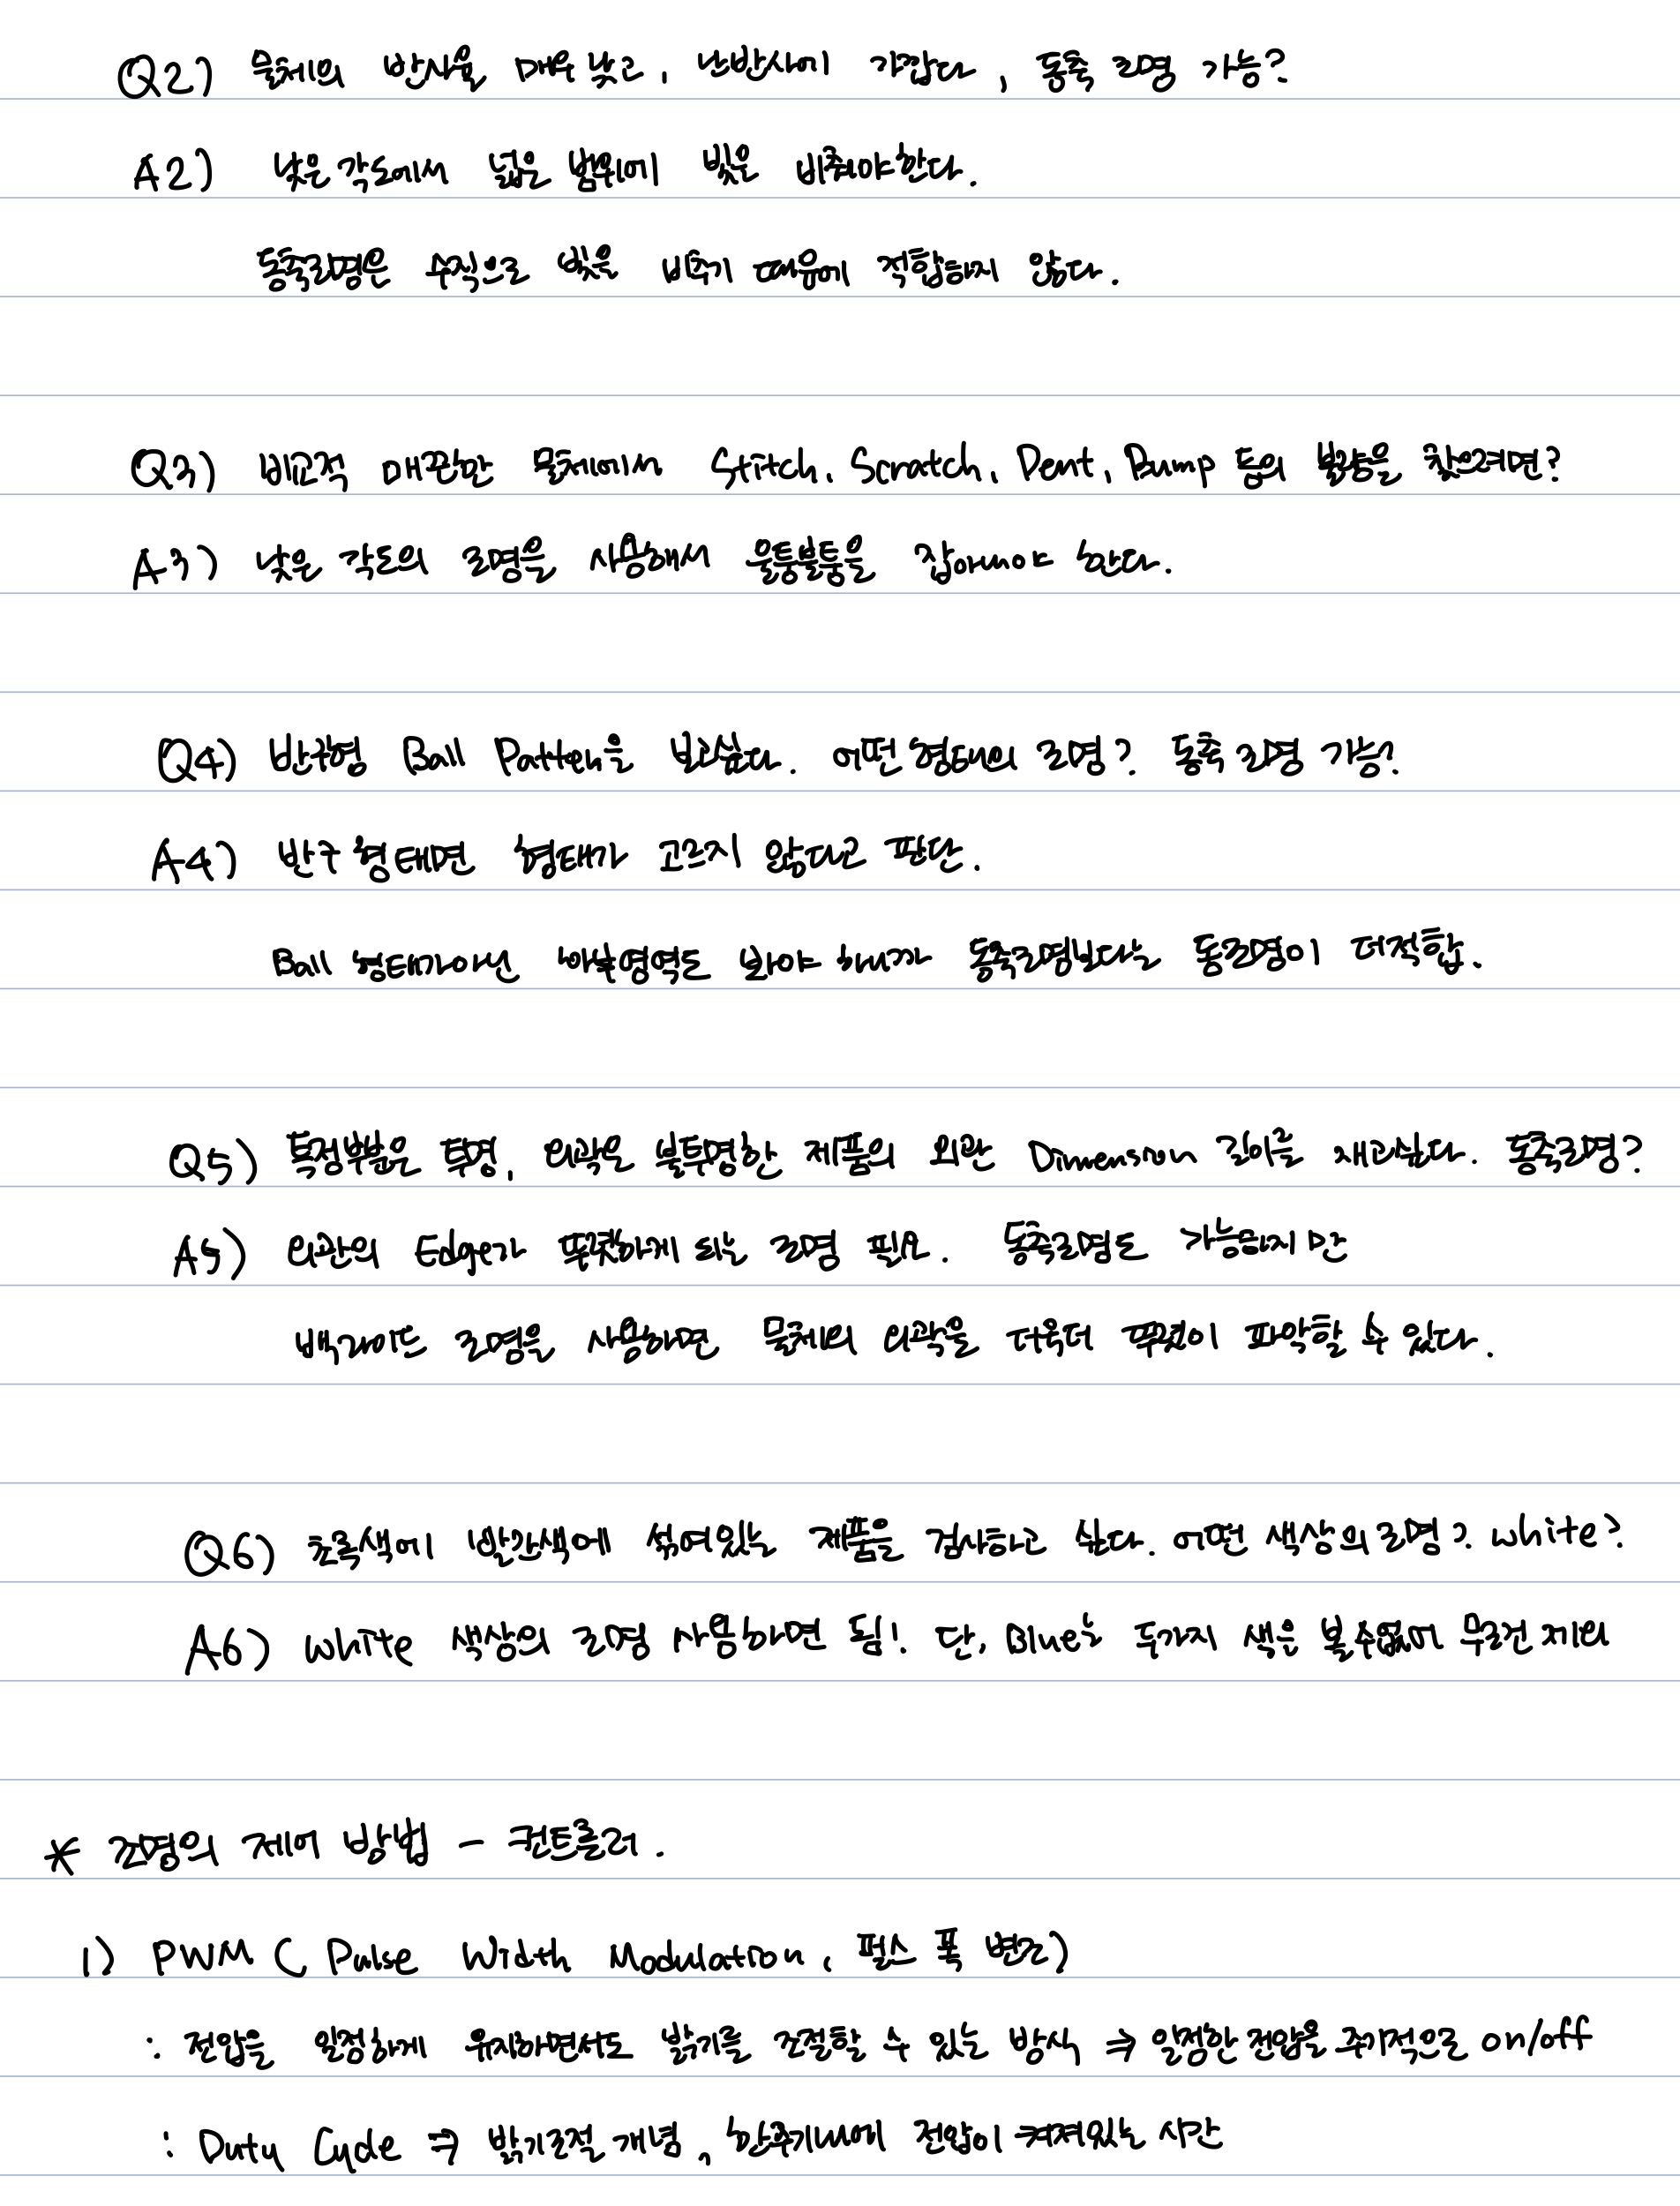 Q2) 물체의 반사율 매우 낮고, 난반사에 가깝다, 동축 조명 가능?
A2) 낮은 각도에서 넓은 범위에 빛은 비춰야한다.
동축조명은 수직으로 빛을 비추기 때문에 적합하지 않다.
Q3) 비교적 매끈한 물체에서 Stitch, Scratch, Dent, Bump 등의 불량을 찾으려면?
A3) 낮은 각도의 조명을 사용해서 울퉁불퉁을 잡아내야 한다.
Q4) 반구형 Ball Pattern을 보고싶다. 어떤 형태의 조명? 동축 조명 가능?
A4) 반구 형태면 형태가 고르지 않다고 판단.
Ball 형태가아닌 하부영역도 봐야 하니까 동축조명보다는 돔조명이 더적합.
Q5) 특정부분은 투명, 외곽은 불투명한 제품의 외관 Dimension 길이를 재고싶다. 동축조명?
A5) 외관의 Edge가 뚜렷하게 되는 조명 필요. 동축조명도 가능하지만
백라이트 조명을 사용하면 물체의 외곽을 더욱더 뚜렷이 파악할 수 있다.
Q6) 초록색에 빨간색에 섞여있는 제품을 검사하고 싶다. 어떤 색상의 조명? white?
A6) white 색상의 조명 사용하면 됨! 단, Blue는 두가지 색은 볼수없어 무조건 제외
* 조명의 제어 방법 - 컨트롤러.
1) PWM ( Pulse Width Modulation, 펄스 폭 변조)
: 전압을 일정하게 유지하면서도 밝기를 조절할 수 있는 방식 ⇒ 일정한 전압을 주기적으로 on/off
: Duty Cycle ⇒ 밝기조절 개념, 한주기내에 전압이 켜져있는 시간